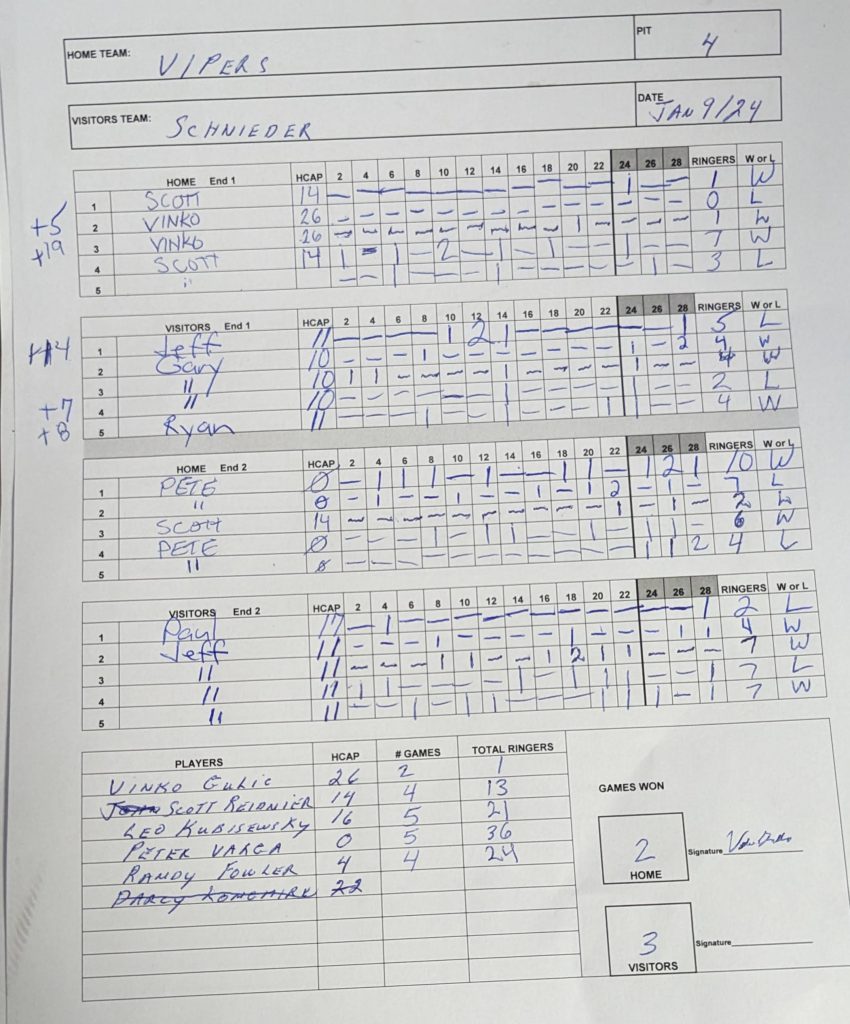 HOME TEAM: VIPERS PIT 4
VISITORS TEAM: SCHNIEDER DATE JAN 9/24
HOME End 1 HCAP 2 4 6 8 10 12 14 16 18 20 22 24 26 28 RINGERS W or L
1 SCOTT 14 – – – – – – – – – – – 1 – – 1 W
+5 2 VINKO 26 – – – – – – – – – – – – – – 0 L
+19 3 VINKO 26 – – – – – – – – – 1 – – – – 1 L
4 SCOTT 14 1 – 1 – 2 – 1 – 1 – – 1 – – 7 W
5 " – – 1 – – – 1 – – – – – 1 – 3 L
VISITORS End 1 HCAP 2 4 6 8 10 12 14 16 18 20 22 24 26 28 RINGERS W or L
1 Jeff 11 – – – – 1 2 1 – – – – – – 1 5 L
2 Gary 10 – – – 1 – – – – – – – 1 – 2 4 W
3 " 10 1 1 – – – – 1 – – – – 1 – – 4 W
+7 4 " 10 – – – – – – 1 – – – – 1 – – 2 L
+8 5 Ryan 11 – – – 1 – – 1 – – – 1 1 – – 4 W
HOME End 2 HCAP 2 4 6 8 10 12 14 16 18 20 22 24 26 28 RINGERS W or L
1 PETE 0 – 1 1 1 – 1 – – 1 1 – 1 2 1 10 W
2 " 0 – 1 – – 1 – – 1 – 1 2 – 1 – 7 L
3 SCOTT 14 – – – – – – – – – – 1 – 1 – 2 L
4 PETE 0 – – – 1 – 1 1 – – 1 – 1 1 – 6 W
5 " 0 – – – – – – – – – – – 1 1 2 4 L
VISITORS End 2 HCAP 2 4 6 8 10 12 14 16 18 20 22 24 26 28 RINGERS W or L
1 Paul 17 – 1 – – – – – – – – – – – 1 2 L
2 Jeff 11 – – – 1 – – – – 1 – – – 1 1 4 W
3 " 11 – – – 1 1 – – 1 2 1 1 – – – 7 W
4 " 11 1 1 – – – – 1 – 1 1 1 – – 1 7 L
5 " 11 – – 1 – 1 1 – – – – 1 1 – 1 7 W
PLAYERS HCAP # GAMES TOTAL RINGERS
VINKO GULIC 26 2 1
SCOTT REIDNIER 14 4 13
LEO KUBISEWSKY 16 5 21
PETER VARGA 0 5 36
RANDY FOWLER 4 4 24
DARCY 22
GAMES WON
2 HOME Signature
3 VISITORS Signature